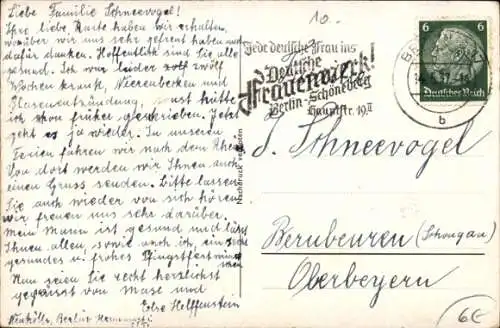 Liebe Familie Schneevogel!
Ihre liebe Karte haben wir erhalten,
worüber wir uns sehr gefreut haben und
dafür danken. Hoffentlich sind Sie alle
gesund. Ich war leider zwölf
Wochen krank, Nierenbecken und
Blasenentzündung, sonst hätte
ich schon früher geschrieben. Jetzt
geht es ja wieder. In unseren
Ferien fahren wir nach dem Rhein
Von dort werden wir Ihnen auch
einen Gruss senden. Bitte lassen
Sie auch wieder von sich hören
wir freuen uns sehr darüber.
Mein Mann ist gesund und lässt
Ihnen allen, sowie auch ich, ein
gesundes u. frohes Pfingstfest
Nun seien Sie recht herzlichst
gegrüsst von
Else Helffenstein
Neukölln, Berlin
Nachdruck verboten
10.-
Jede deutsche Frau ins
Deutsche
Frauenwerk!
Berlin-Schöneberg
Hauptstr. 19 II
6 6
Deutsches Reich
b
Schneevogel
Bernbeuren (Schongau)
Oberbeyern
6€